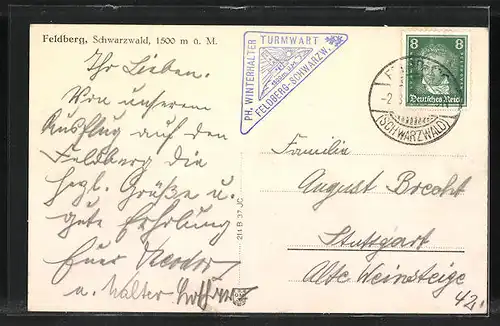 Feldberg, Schwarzwald, 1500 m ü. M.
Ihr Lieben.
Von unserem
Ausflug auf den
Feldberg die
herzl. Grüße u.
gute Erholung
Euer
u. Walter
PH. WINTERHALTER
TURMWART
FELDBERG-SCHWARZW.
8 8
Deutsches Reich
(SCHWARZWALD)
211 B 37 JC
Familie
August Brecht
Stuttgart
Alte Weinsteige
42.